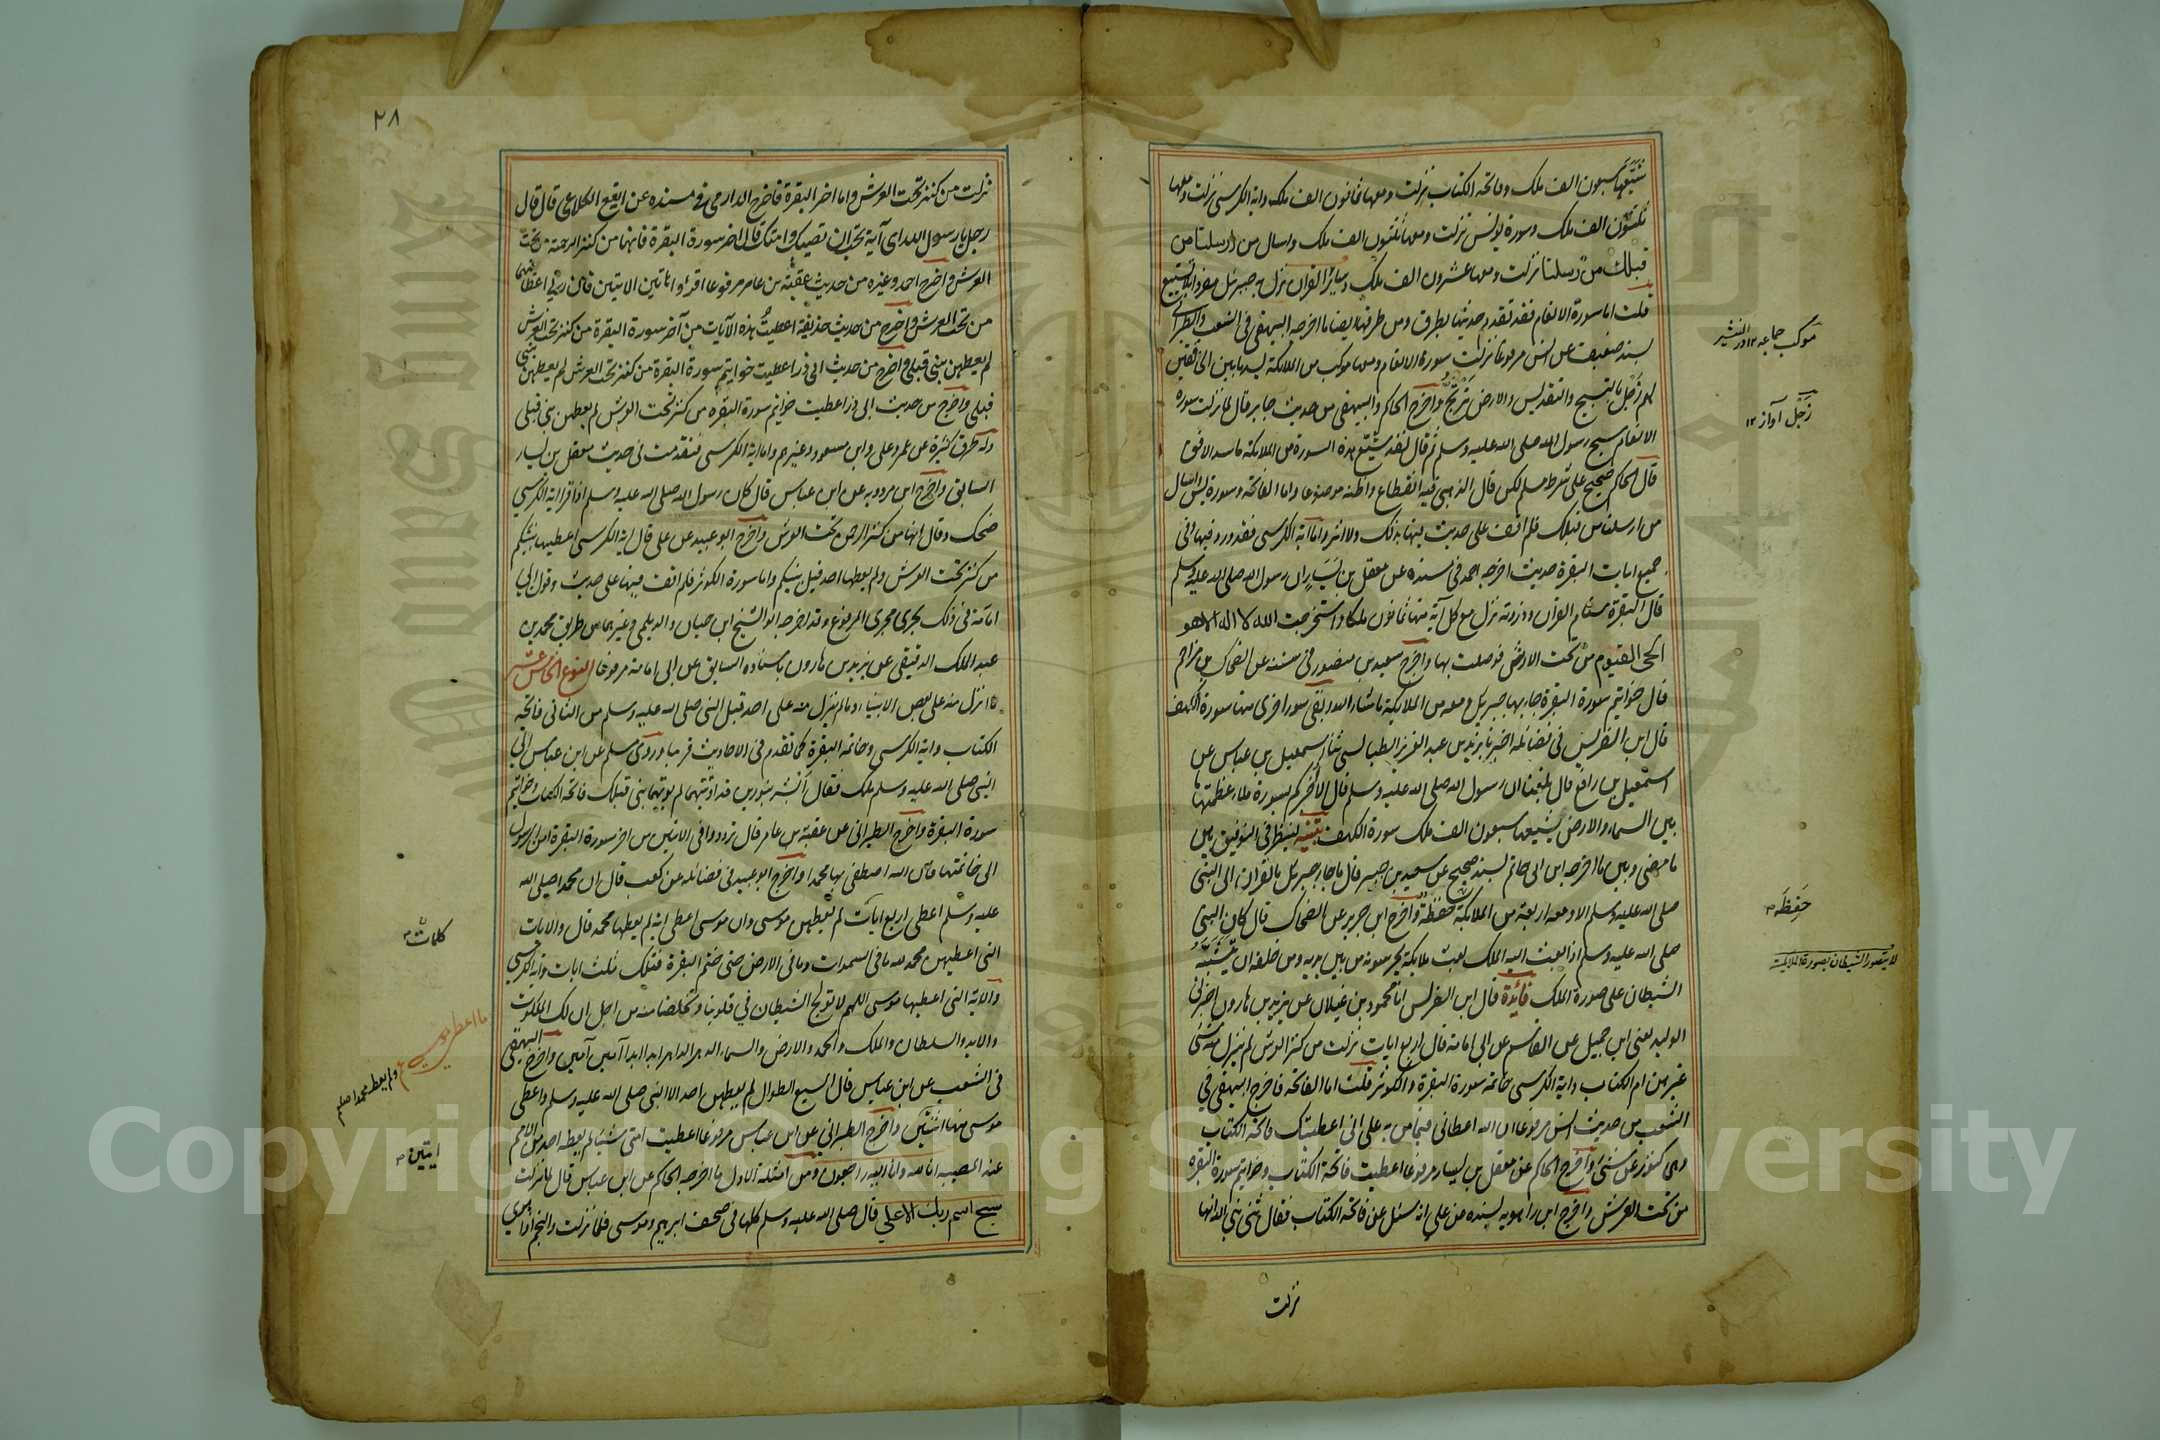 شيعها سبعون الف ملك وفاتحة الكتاب نزلت ومعها ثمانون الف ملك واية الكرسى نزلت ومعها
ثلثون الف ملك وسورة يونس نزلت ومعها ثلثون الف ملك واسال من ارسلنا من
قبلك من رسلنا نزلت ومعها عشرون الف ملك وسائر القران نزل به جبرئيل مفردا بلا تشييع
قلت اما سورة الانعام فقد تقدم حديثها بطرق ومن طرقه ايضا ما اخرجه البيهقى فى الشعب والطبرانى
بسند ضعيف عن انس مرفوعا نزلت سورة الانعام ومعها موكب من الملائكة يسد ما بين الخافقين
لهم زجل بالتسبيح والتقديس والارض ترتج واخرج الحاكم والبيهقى من حديث جابر قال لما نزلت سورة
الانعام سبح رسول الله صلى الله عليه وسلم ثم قال لقد شيع هذه السورة من الملائكة ما سد الافق
قال الحاكم صحيح على شرط مسلم لكن قال الذهبى فيه انقطاع واظنه موضوعا واما الفاتحة وسورة يس واسال
من ارسلنا من قبلك فلم اقف على حديث فيها بذلك ولا اثر واما اية الكرسى فقد ورد فيها وفى
جميع ايات البقرة حديث اخرجه احمد فى مسنده عن معقل بن يسار ان رسول الله صلى الله عليه وسلم
قال البقرة سنام القران وذروته نزل مع كل آية منها ثمانون ملكا واستخرجت الله لا اله الا هو
الحى القيوم من تحت الارش فوصلت بها واخرج سعيد بن منصور فى سننه عن الضحاك بن مزاحم
قال خواتيم سورة البقرة جاء بها جبريل ومعه من الملائكة ما شاء الله وبقى سور اخرى منها سورة الكهف
قال ابن الضريس فى فضائله اخبرنا يزيد بن عبد العزيز الطيالسى ثنا اسمعيل بن عياش عن
اسمعيل بن رافع قال بلغنا ان رسول الله صلى الله عليه وسلم قال الا اخبركم بسورة ملاء عظمتها
بين السماء والارض شيعها سبعون الف ملك سورة الكهف تنبيه لينظر فى التوفيق بين
ما مضى وبين ما اخرجه ابن ابى حاتم بسند صحيح عن سعيد بن جبير قال ما جاء جبرئيل بالقران الى النبى
صلى الله عليه وسلم الا ومعه اربعة من الملائكة حفظة واخرج ابن جرير عن الضحاك قال كان النبى
صلى الله عليه وسلم اذا بعث اليه الملك بعث ملائكة يحرسونه من بين يديه ومن خلفه ان يتشبه
الشيطان على صورة الملك فائدة قال ابن الضريس انا محمود بن غيلان عن يزيد بن هارون اخبرنى
الوليد يعنى ابن جميل عن القاسم عن ابى امامة قال اربع ايات نزلت من كنز العرش لم ينزل منه شئ
غيرهن ام الكتاب واية الكرسى خاتمة سورة البقرة والكوثر قلت اما الفاتحة فاخرج البيهقى فى
الشعب من حديث انس مرفوعا ان الله اعطانى فيما من به على انى اعطيتك فاتحة الكتاب
وهى كنوز عرشى واخرج الحاكم عن معقل بن يسار مرفوعا اعطيت فاتحة الكتاب وخواتيم سورة البقرة
من تحت العرش واخرج ابن راهويه بسنده عن على انه سئل عن فاتحة الكتاب فقال ثنى نبى الله انها
نزلت
موكب جماعه ١٢
زجل آواز ١٢
حفظة
لا يتصور الشيطان بصورة الملائكة
٢٨
نزلت من كنز تحت العرش واما اخر البقرة فاخرج الدارمى فى مسنده عن ايفع الكلاعى قال قال
رجل يا رسول الله اى آية تحب ان تصيبك وامتك قال اخر سورة البقرة فانها من كنز الرحمة من تحت
العرش واخرج احمد وغيره من حديث عقبة بن عامر مرفوعا اقرءوا هاتين الايتين فان ربى اعطانيهما
من تحت العرش واخرج من حديث حذيفة اعطيت هذه الآيات من آخر سورة البقرة من كنز تحت العرش
لم يعطهن نبى قبلى واخرج من حديث ابى ذر اعطيت خواتيم سورة البقرة من كنز تحت العرش لم يعطهن نبى
قبلى واخرج من حديث ابى ذر اعطيت خواتيم سورة البقره من كنز تحت العرش لم يعطهن نبى قبلى
وله طرق كثيرة عن عمر وعلى وابن مسعود وغيرهم واما اية الكرسى فتقدمت فى حديث معقل بن يسار
السابق واخرج ابن مردويه عن ابن عباس قال كان رسول الله صلى الله عليه وسلم اذا قرا اية الكرسى
ضحك وقال انها من كنز الرحمن تحت العرش واخرج ابو عبيد عن على قال اية الكرسى اعطيها نبيكم
من كنز تحت العرش ولم يعطها احد قبل نبيكم واما سورة الكوثر فلم اقف فيها على حديث وقول ابى
امامة فى ذلك يجرى مجرى المرفوع وقد اخرجه ابو الشيخ ابن حيان والديلمى وغيرهما من طريق محمد بن
عبد الملك الدقيقى عن يزيد بن هارون باسناده السابق عن ابى امامة مرفوعا النوع الخامس عشر
ما انزل منه على بعض الانبياء وما لم ينزل منه على احد قبل النبى صلى الله عليه وسلم من الثانى فاتحة
الكتاب واية الكرسى وخاتمة البقرة كما تقدم فى الاحاديث قريبا وروى مسلم عن ابن عباس اتى
النبى صلى الله عليه وسلم ملك فقال ابشر بنورين قد اوتيتهما لم يوتهما نبى قبلك فاتحة الكتاب وخواتيم
سورة البقرة واخرج الطبرانى عن عقبة بن عامر قال ترددوا فى الايتين من اخر سورة البقرة امن الرسول
الى خاتمتها فان الله اصطفى بها محمدا واخرج ابو عبيد فى فضائله عن كعب قال ان محمدا صلى الله
عليه وسلم اعطى اربع ايات لم يعطهن موسى وان موسى اعطى اية لم يعطها محمد قال والايات
التى اعطيهن محمد لله ما فى السموات وما فى الارض حتى ختم البقرة فتلك ثلث ايات واية الكرسى
والاية التى اعطيها موسى اللهم لا تولج الشيطان فى قلوبنا وخلصنا منه من اجل ان لك الملكوت
والايد والسلطان والملك والحمد والارض والسماء الدهر الداهر ابدا ابدا آمين آمين واخرج البيهقى
فى الشعب عن ابن عباس قال السبع الطوال لم يعطهن احد الا النبى صلى الله عليه وسلم واعطى
موسى منها اثنتين واخرج الطبرانى عن ابن عباس مرفوعا اعطيت امتى شيئا لم يعطه احد من الامم
عند المصيبة انا لله وانا اليه راجعون ومن امثلة الاول ما اخرجه الحاكم عن ابن عباس قال لما نزلت
سبح اسم ربك الاعلى قال صلى الله عليه وسلم كلها فى صحف ابرهيم وموسى فلما نزلت والنجم اذا هوى
كلمات
ولم يعط محمدا صلعم
ايتين
Copyright © King Saud University